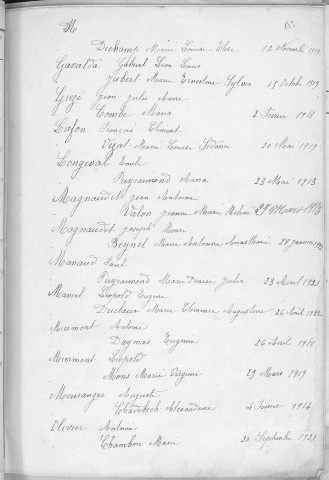 M
Dechamp Marie Louise 12 Novemb 1919
Gavalda Gabriel Léon Louis
Jubert Marie Ernestine Sylvie 15 Octobre 1919
Greze Jean Jules
Combe Maria 2 Fevrier 1918
Lafon François Clement
Marie Louise 20 Mai 1919
Longeval Emile
Puyraimond Anna 23 Mai 1913
Magnaudet Jean Antoine
Valon Jeanne Marie
Magnaudet Joseph
Beynel Marie Antoinette 28 Janvier
Manaud Paul
Puyraimond Marie Denise 23 Avril 1921
Marcel Léopold Eugene
Duclaux Marie Clémence Augustine 26 Août 1922
Miermont Antoine
Daymas Eugenie 26 Avril 1918
Miermont Léopold
Mons Marie Virginie 29 Mars 1919
Meuranger Auguste
Alexandrine 4 Fevrier 1914
Olivier Antoine
Chambon Marie 20 Septembre 1921